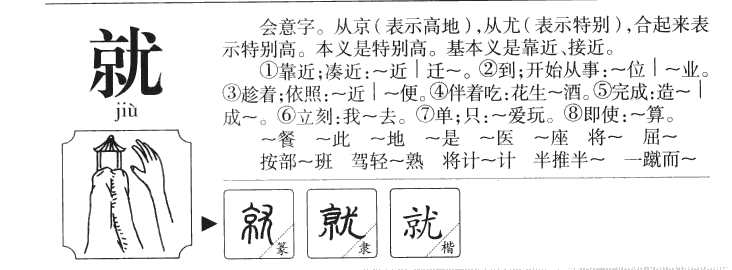 就
jiù
会意字。从京（表示高地），从尤（表示特别），合起来表
示特别高。本义是特别高。基本义是靠近、接近。
①靠近；凑近：～近｜迁～。②到；开始从事：～位｜～业。
③趁着；依照：～近｜～便。④伴着吃：花生～酒。⑤完成：造～｜
成～。⑥立刻：我～去。⑦单；只：～爱玩。⑧即使：～算。
～餐　～此　～地　～是　～医　～座　将～　屈～
按部～班　驾轻～熟　将计～计　半推半～　一蹴而～
就 篆 就 隶 就 楷